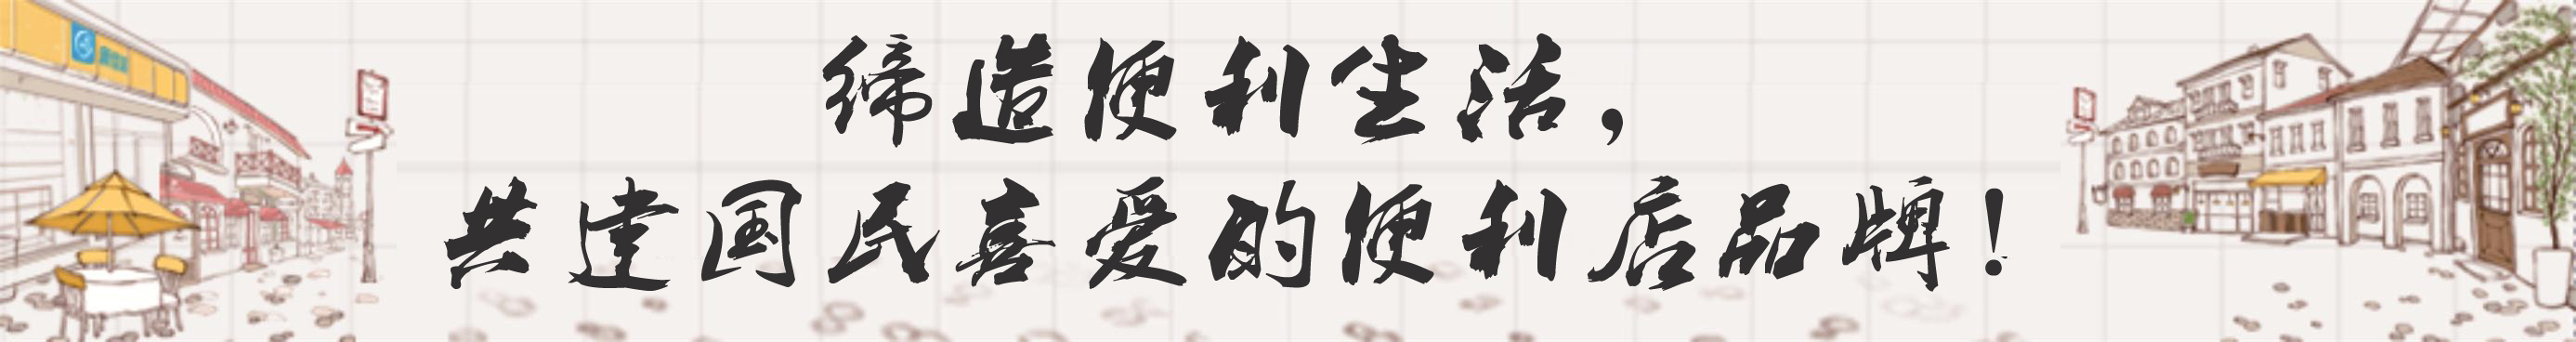 缔造便利生活，
共建国民喜爱的便利店品牌！